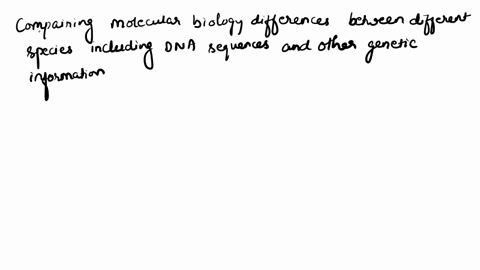 Compaining molecular biology differences between different
species including DNA sequences and other genetic
information